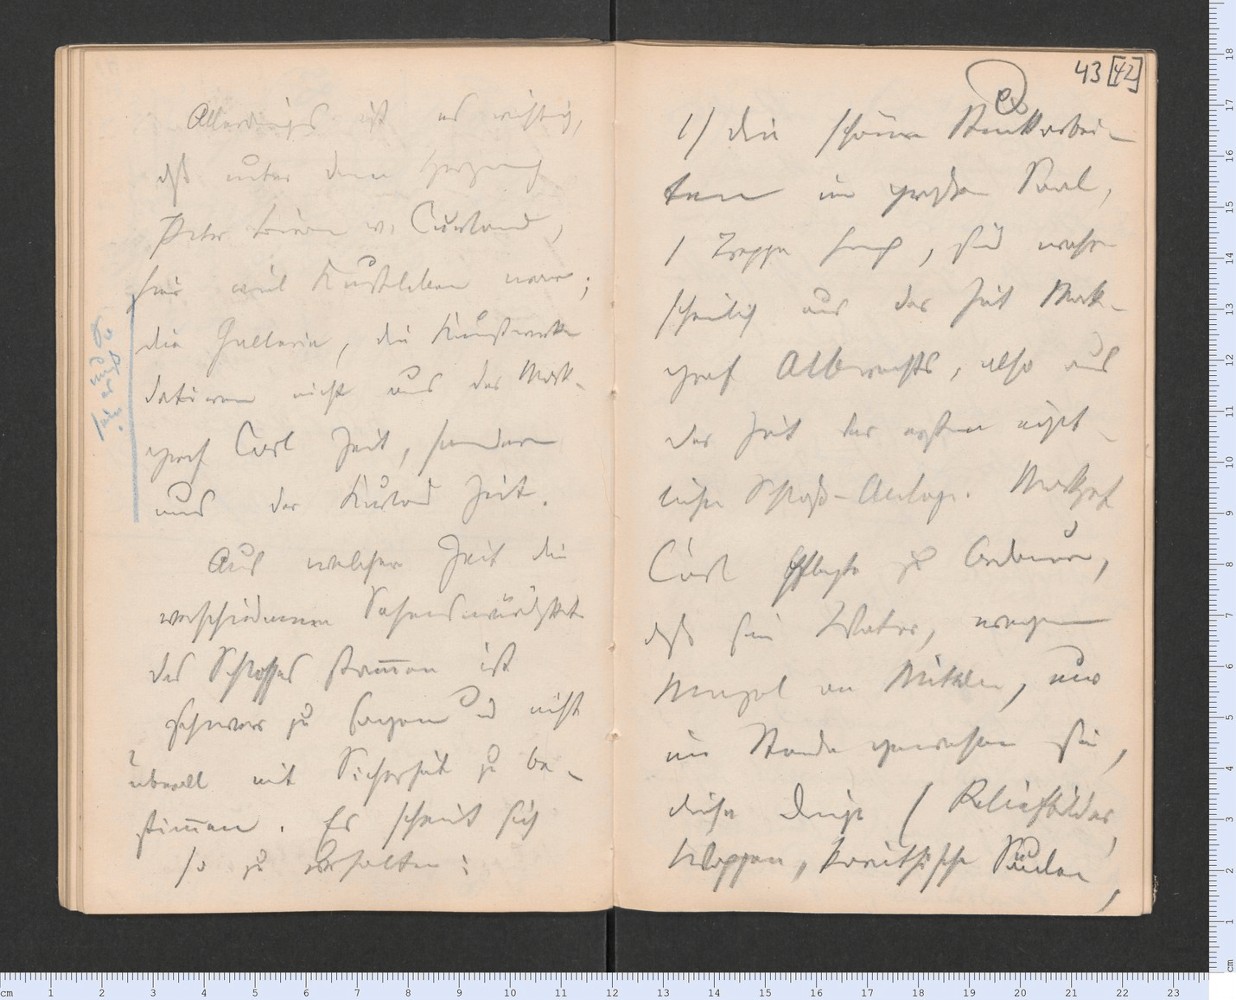 Allerdings ist es richtig,
dß unter dem Herzog
Peter Biron v. Curland,
hier viel Kunstleben war;
die Gallerie, die Kunstwerke
datiren nicht aus der Mark-
graf Carl Zeit, sondern
aus der Kurland Zeit.
Aus welcher Zeit die
verschiedenen Sehenswürdigkeiten
des Schlosses stam̅en ist
schwer zu sagen und nicht
überall mit Sicherheit zu be-
stim̅en. Es scheint sich
so zu verhalten:
43 [42]
1) die schönen Stuckarbei-
ten im großen Saal,
1 Treppe hoch, sind wahr-
scheinlich aus der Zeit Mark-
graf Albrechts, also aus
der Zeit der ersten eigent-
lichen Schloß-Anlage. Markgraf
Carl pflegte zu
dß sein Vater, wegen
Mangel an Mitteln, nur
im Stande gewesen sei,
diese Dinge (Reliefbilder,
Wappen, korinthische Säulen,